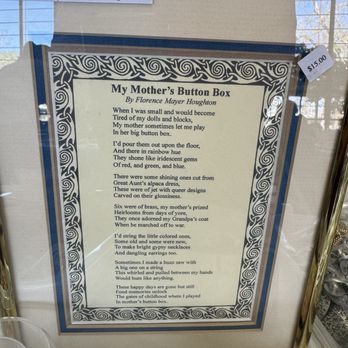 My Mother's Button Box
By Florence Mayer Houghton
When I was small and would become
Tired of my dolls and blocks,
My mother sometimes let me play
In her big button box.
I'd pour them out upon the floor,
And there in rainbow hue
They shone like iridescent gems
Of red, and green, and blue.
There were some shining ones cut from
Great Aunt's alpaca dress,
These were of jet with queer designs
Carved on their glossiness.
Six were of brass, my mother's prized
Heirlooms from days of yore,
They once adorned my Grandpa's coat
When he marched off to war.
I'd string the little colored ones,
Some old and some were new,
To make bright gypsy necklaces
And dangling earrings too.
Sometimes I made a buzz saw with
A big one on a string
This whirled and pulled between my hands
Would hum like anything.
These happy days are gone but still
Fond memories unlock
The gates of childhood where I played
In mother's button box.
$15.00